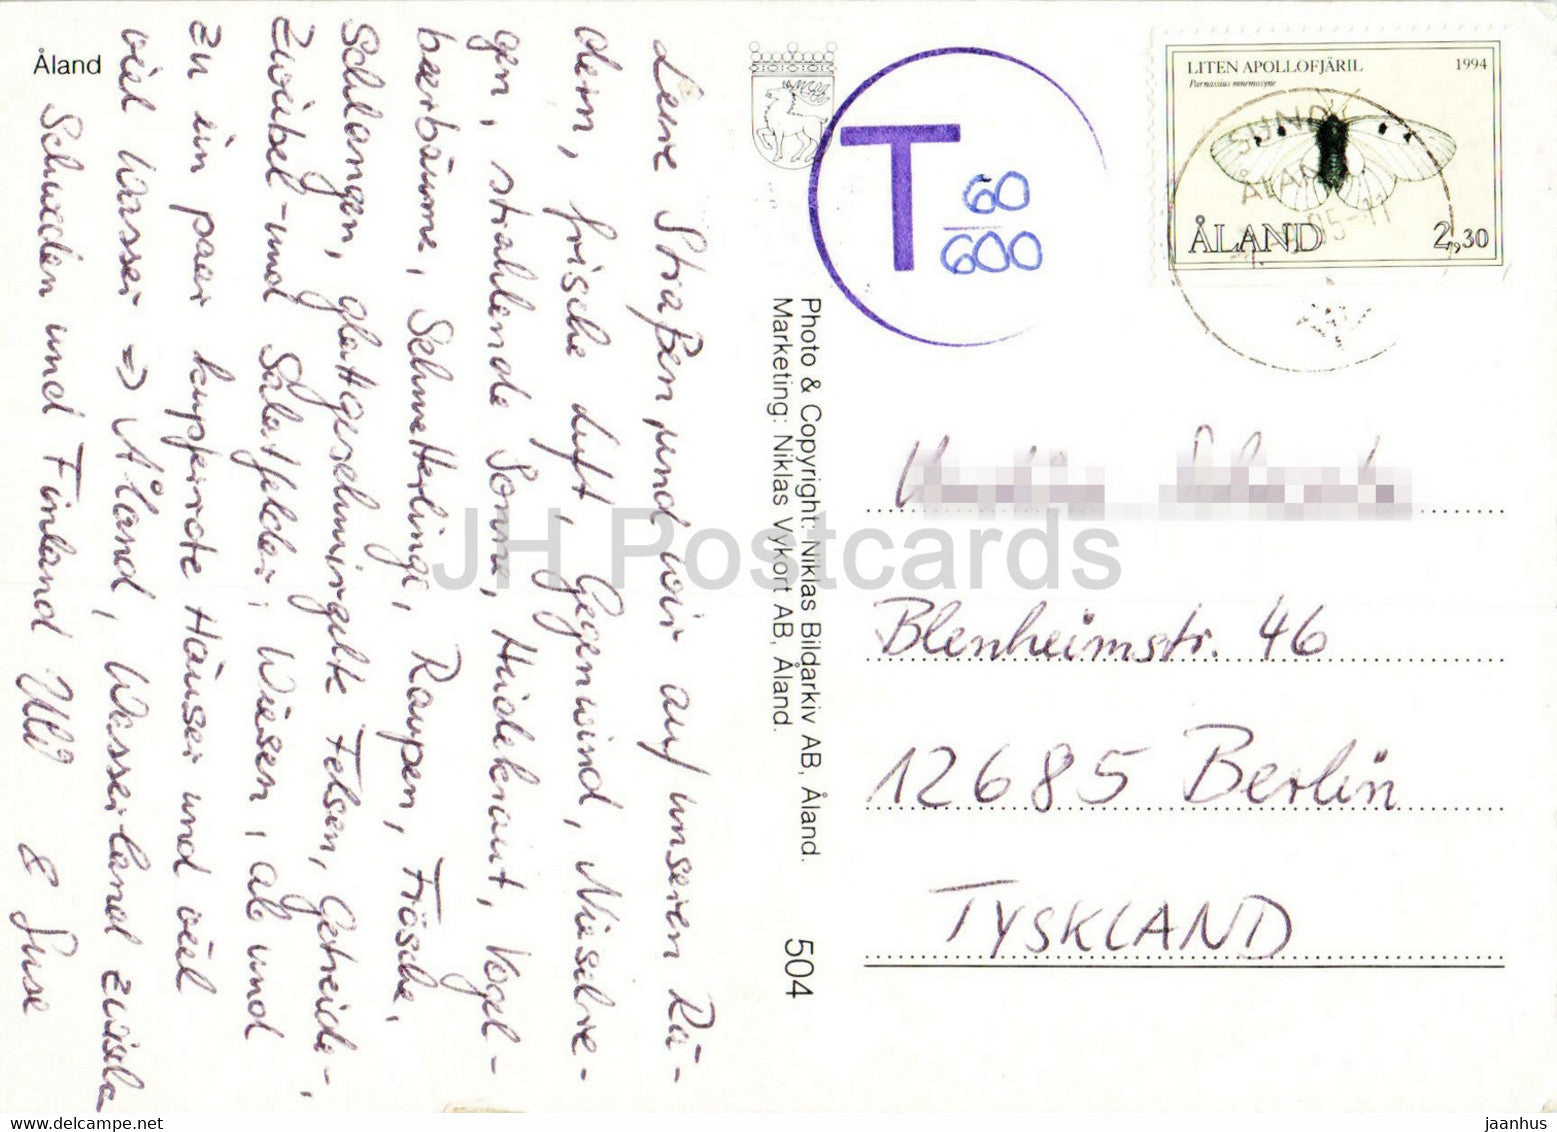 Åland
Leere Straßen, und wir auf unseren Rä-
dern, frische Luft, Gegenwind, Nieselre-
gen, strahlende Sonne, Heidekraut, Vogel-
beerbäume, Schmetterlinge, Raupen, Frösche,
Schlangen, glattgeschmirgelte Felsen, Getreide-,
Zwiebel- und Salatfelder, Wiesen, ab und
zu ein paar kupferrote Häuser und viel
viel Wasser => Åland, Wasserland zwischen
Schweden und Finland Ulli & Suse
Photo & Copyright: Niklas Bildarkiv AB, Åland.
Marketing: Niklas Vykort AB, Åland.
504
T 60
600
LITEN APOLLOFJÄRIL 1994
Parnassius mnemosyne
ÅLAND 2,30
SUND
ÅLAND
95-11
Blenheimstr. 46
12685 Berlin
TYSKLAND
JH Postcards
jaanhus
www.delcampe.net